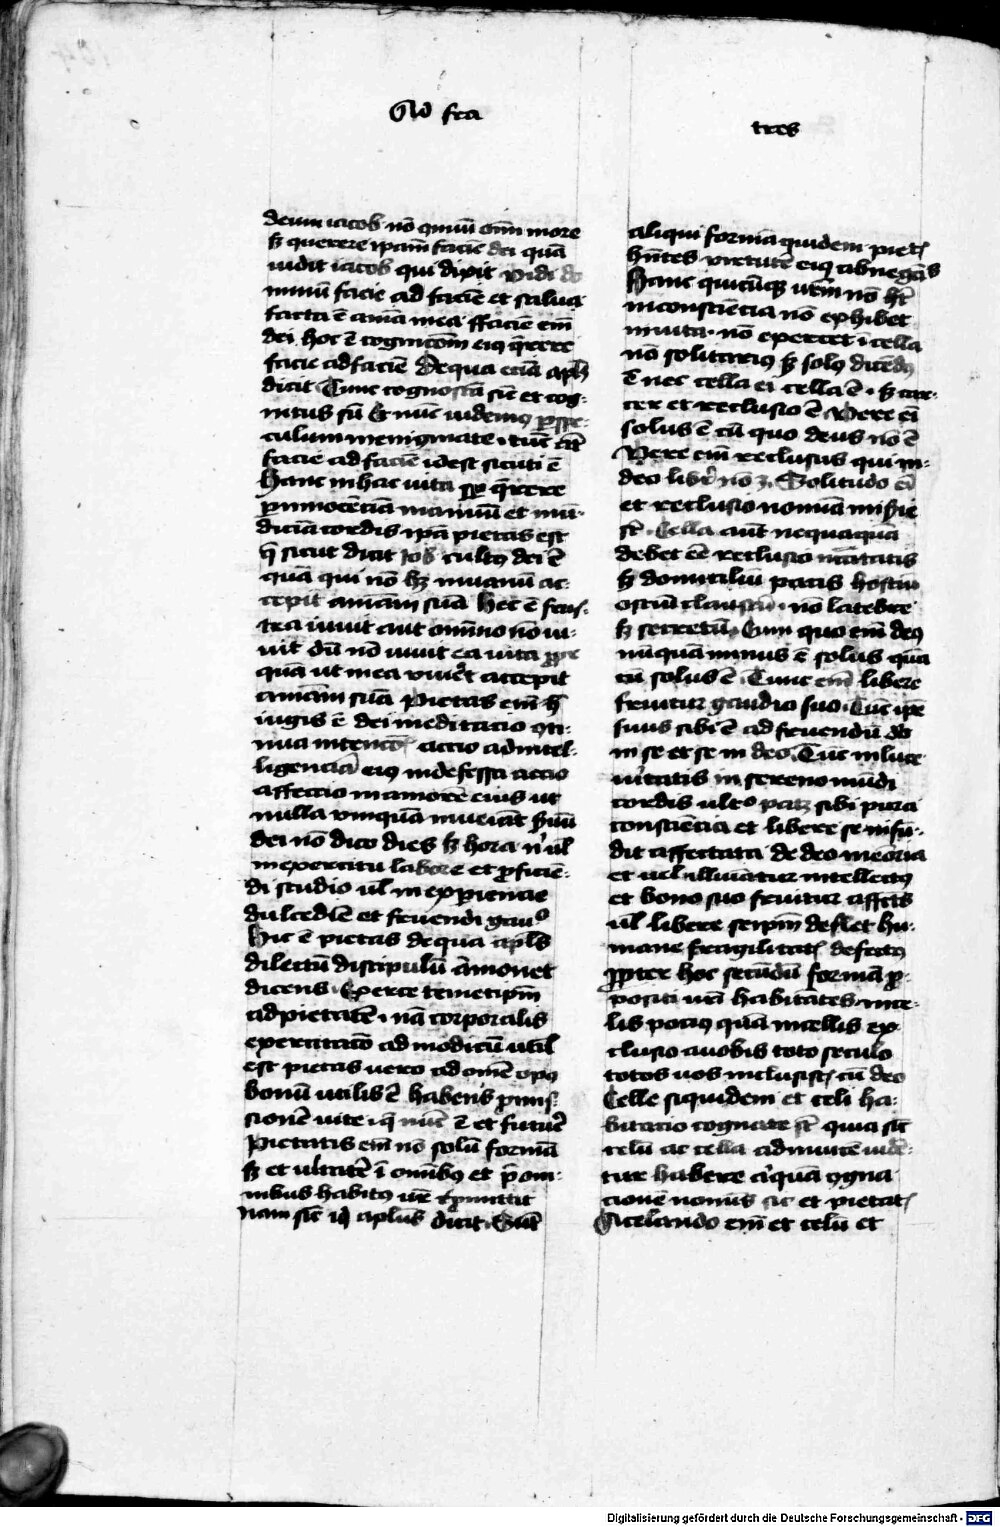 Ad fra
tres
deum iacob nō quiuū om̄i more
sꝫ querere ipam faciē dei quā
uidit iacob qui dixit vidi do
minū facie ad faciē et salua
facta ē aīma mea ffaciē em̄
dei hoc ē cognicōm eiꝰ q̄rere
facie ad faciē De qua eciā apl̄s
dicit Tunc cognoscā sic̄ et cog-
nitus sū Et nūc uidemꝰ ꝑ spe-
culum in enigmate · tūc aūt
facie ad faciē id est sicuti ē
Hanc in hac uita q̄rere
ꝑ innocēciā manuū et mū-
diciā cordis ipā pietas est
q̄ sicut dicit Iob cultꝰ dei ē
quā qui nō hꝫ in uanū ac-
cepit aīmam suā hec ē frus-
tra uiuit aut om̄no nō ui-
uit dū nō uiuit ea uita ꝓpt̄
quā ut in ea viuēt accepit
aīmam suā Pietas em̄ h̄
iugis ē dei meditacio ꝯti-
nua intencō accio ad intel-
ligenciā eiꝰ indefessa accio
affectio in amorē eius ut
nulla vmquā inueiāt s̄uū
dei nō dico dies sꝫ hora n̄ ul̄
in exercitu labore et ꝓficiē-
di studio ul̄ in exꝑiencie
dulcedīe et fruendi gau°
Hic ē pietas de qua apl̄s
dilectū discipulū āmonet
dicens · Exerce temetipm̄
ad pietatē · nā corporalis
exercitacō ad modicū util̄
est pietas uero ad om̄e opꝰ
bonū utilis ē habens ꝓmis-
sionē uite · q̄ nūc ē et futur̄e
Pietatis em̄ nō solū formā
sꝫ et ūitatē ī om̄ibꝰ et p̄ om-
nibus habitꝰ ur̄e ꝓmittit
Nam sic̄ id̄ aplus dicit · Sūt
aliqui formā quidem pietꝭ
hn̄tes virtutē eiꝰ abnegātꝭ
Hanc quicūqꝫ ur̄m nō ht̄
in consciēcia nō exhibet
in uita · nō exercet ī cella
nō solitariꝰ sꝫ solꝰ dicēdꝰ
ē nec cella ei cella ē · sꝫ car-
cer et reclusio ē Vere em̄
solus ē cū quo deus nō ē
Vere em̄ reclusus qui in
deo liber nō ē · Solitudo em̄
et reclusio nomina miserie
st̄ · Cella aut̄ nequaquā
debet eē reclusio necitatis
sꝫ domicilium pacis hostiū
ostiū clausum · nō latebre
sꝫ secretū · Cum quo em̄ deꝰ
nūquā minus ē solus quā
cū solus ē · Tunc em̄ libere
fruitur gaudio suo · Tūc ip̄e
suus sibi ē ad fruendū do
in se et se in deo · Tūc in luce
ūitatis in sereno mūdi
cordis ult° patꝫ sibi pura
consciēcia et libere se infū-
dit affectata de deo mēoria
et uel illuīatur intellectꝰ
et bono suo fruitur affctꝰ
ul̄ libere seipm̄ deflet hu-
mane fragilitatꝭ defectꝰ
ꝓpter hoc secūdū formā ꝓ-
positi ur̄i habitātes in ce-
lis pociꝰ quā in cellis ex-
clusio auobis toto seculo
totos uos inclusistꝭ cū deo
Celle siquidem et celi ha-
bitacio cognate st̄ quia sic̄
celū ac cella ad inuicē uidēt-
tur habere ali̇quā ꝯgna
cionē nomīs sic et pietatꝭ
A celando em̄ et celū et
Digitalisierung gefördert durch die Deutsche Forschungsgemeinschaft - DFG